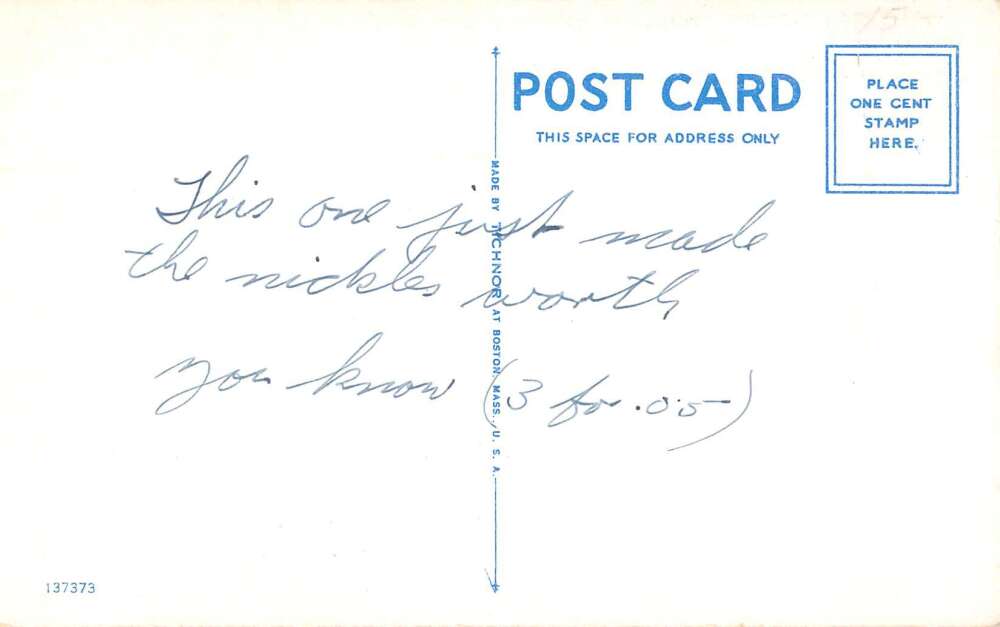 15-
POST CARD
THIS SPACE FOR ADDRESS ONLY
PLACE
ONE CENT
STAMP
HERE.
MADE BY TICHNOR AT BOSTON, MASS., U. S. A.
This one just made
the nickles worth
you know (3 for .05)
137373